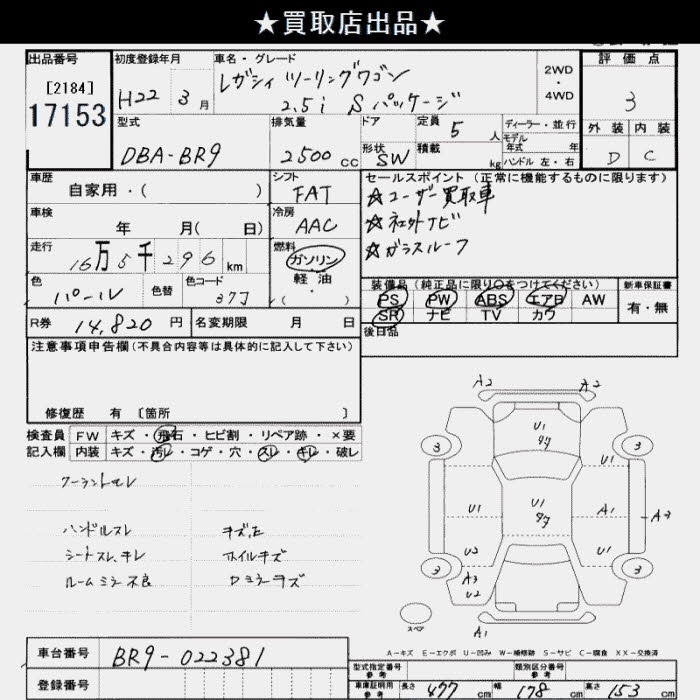 ★買取店出品★
出品番号
[2184]
17153
初度登録年月
H22 3月
車名・グレード
レガシィ ツーリングワゴン
2.5i Sパッケージ
2WD
・
4WD
評価点
3
外装 内装
D C
型式
DBA-BR9
排気量
2500 CC
ドア
形状 SW
定員 5 人
積載 kg
ディーラー・並行
モデル
年式 年
ハンドル 左・右
車歴
自家用・( )
シフト
FAT
セールスポイント (正常に機能するものに限ります)
☆ユーザー買取車
☆社外ナビ
☆ガラスルーフ
車検
年 月( 日)
冷房
AAC
走行
16万5千296 km
燃料
ガソリン
軽油
・
( )
色
パール
色替
色コード
37J
装備品 (純正品に限り○をつけてください)
PS PW ABS エアB AW
SR ナビ TV カワ
新車保証書
有・無
R券 14,820 円
名変期限 月 日
後日品
注意事項申告欄(不具合内容等は具体的に記入して下さい)
修復歴 有 [箇所 ]
検査員 FW キズ・飛石・ヒビ割・リペア跡・×要
記入欄 内装 キズ・汚レ・コゲ・穴・スレ・キレ・破レ
クーラントモレ
ハンドルスレ キズ、凹
シートスレ、キレ ホイルキズ
ルームミラー不良 Dミラーキズ
A2 A2
U1
3 3
U1
U1 U1 A1 A3
U2 U1
3 A3 3
U2
スペア
A1
A-キズ E-エクボ U-凹み W-補修跡 S-サビ C-腐食 XX-交換済
車台番号 BR9-022381
登録番号
型式指定番号
参考
類別区分番号
参考
車庫証明用
参考
長さ 477 cm 幅 178 cm 高さ 153 cm